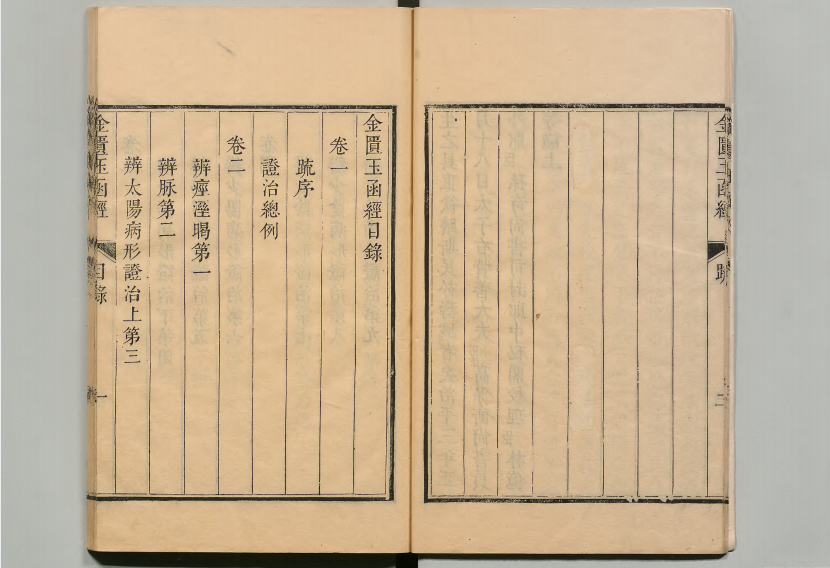 金匱玉函經
䟽
二
金匱玉函經目錄
卷一
䟽序
證治總例
卷二
辨痙溼暍第一
辨脉第二
辨太陽病形證治上第三
金匱玉函經
目錄
一